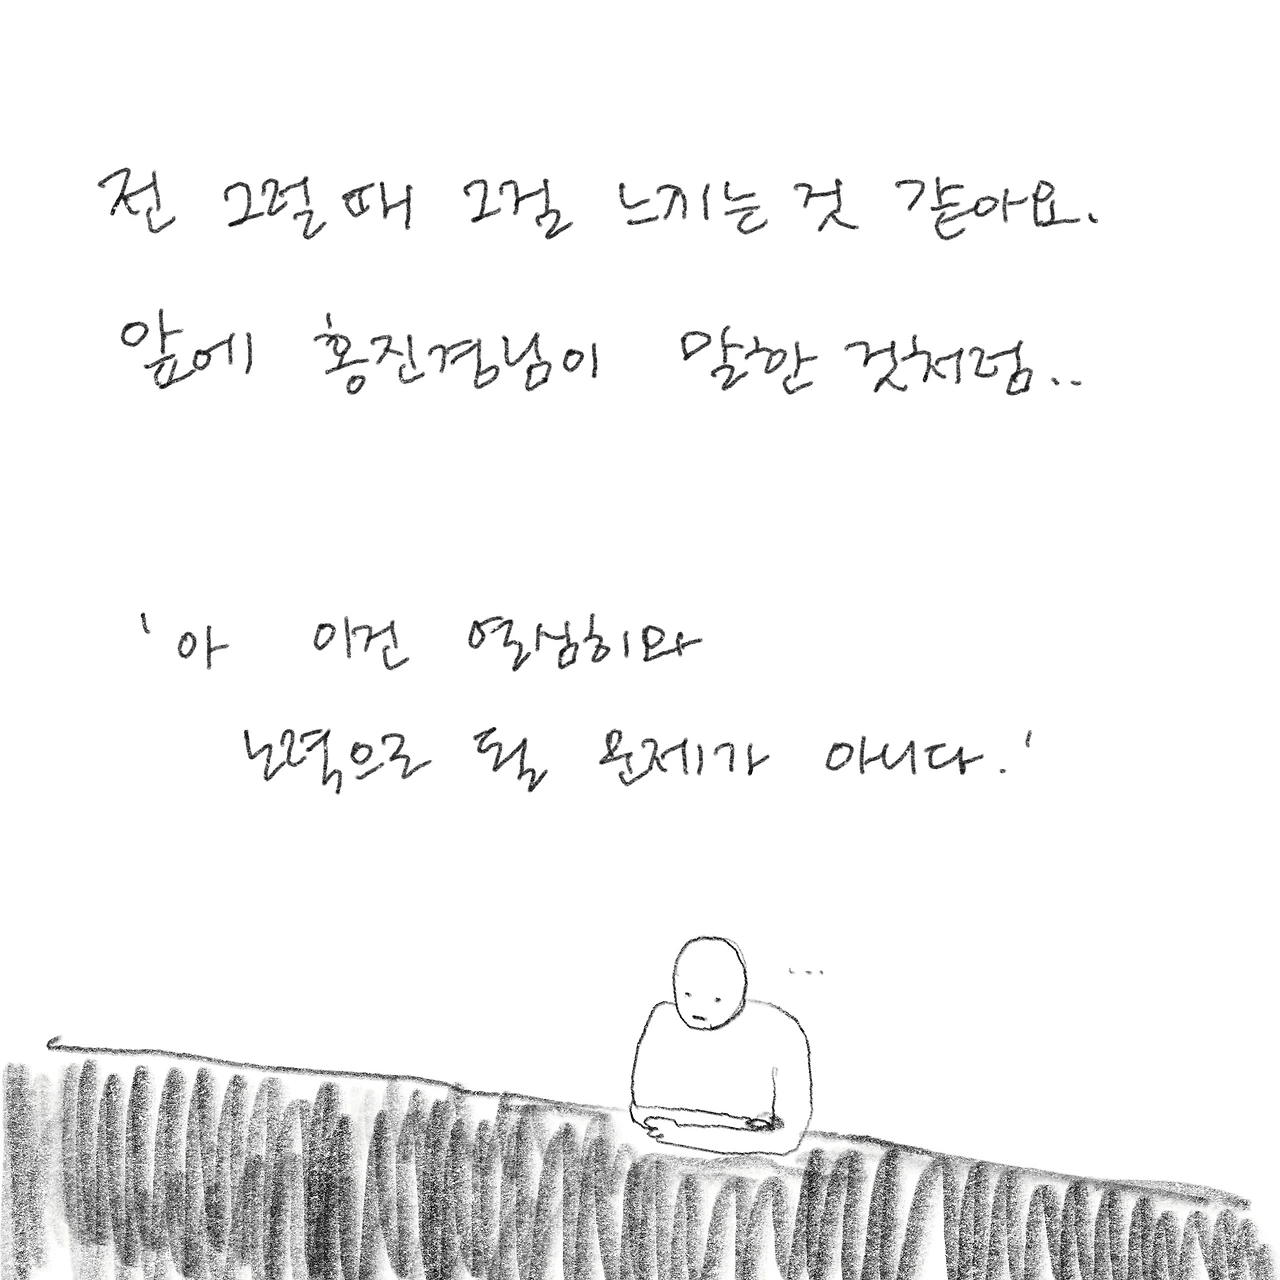 전 그럴 때 그걸 느끼는 것 같아요.
앞에 홍진경님이 말한 것처럼..
' 아 이건 열심히와
노력으로 될 문제가 아니다.'
...